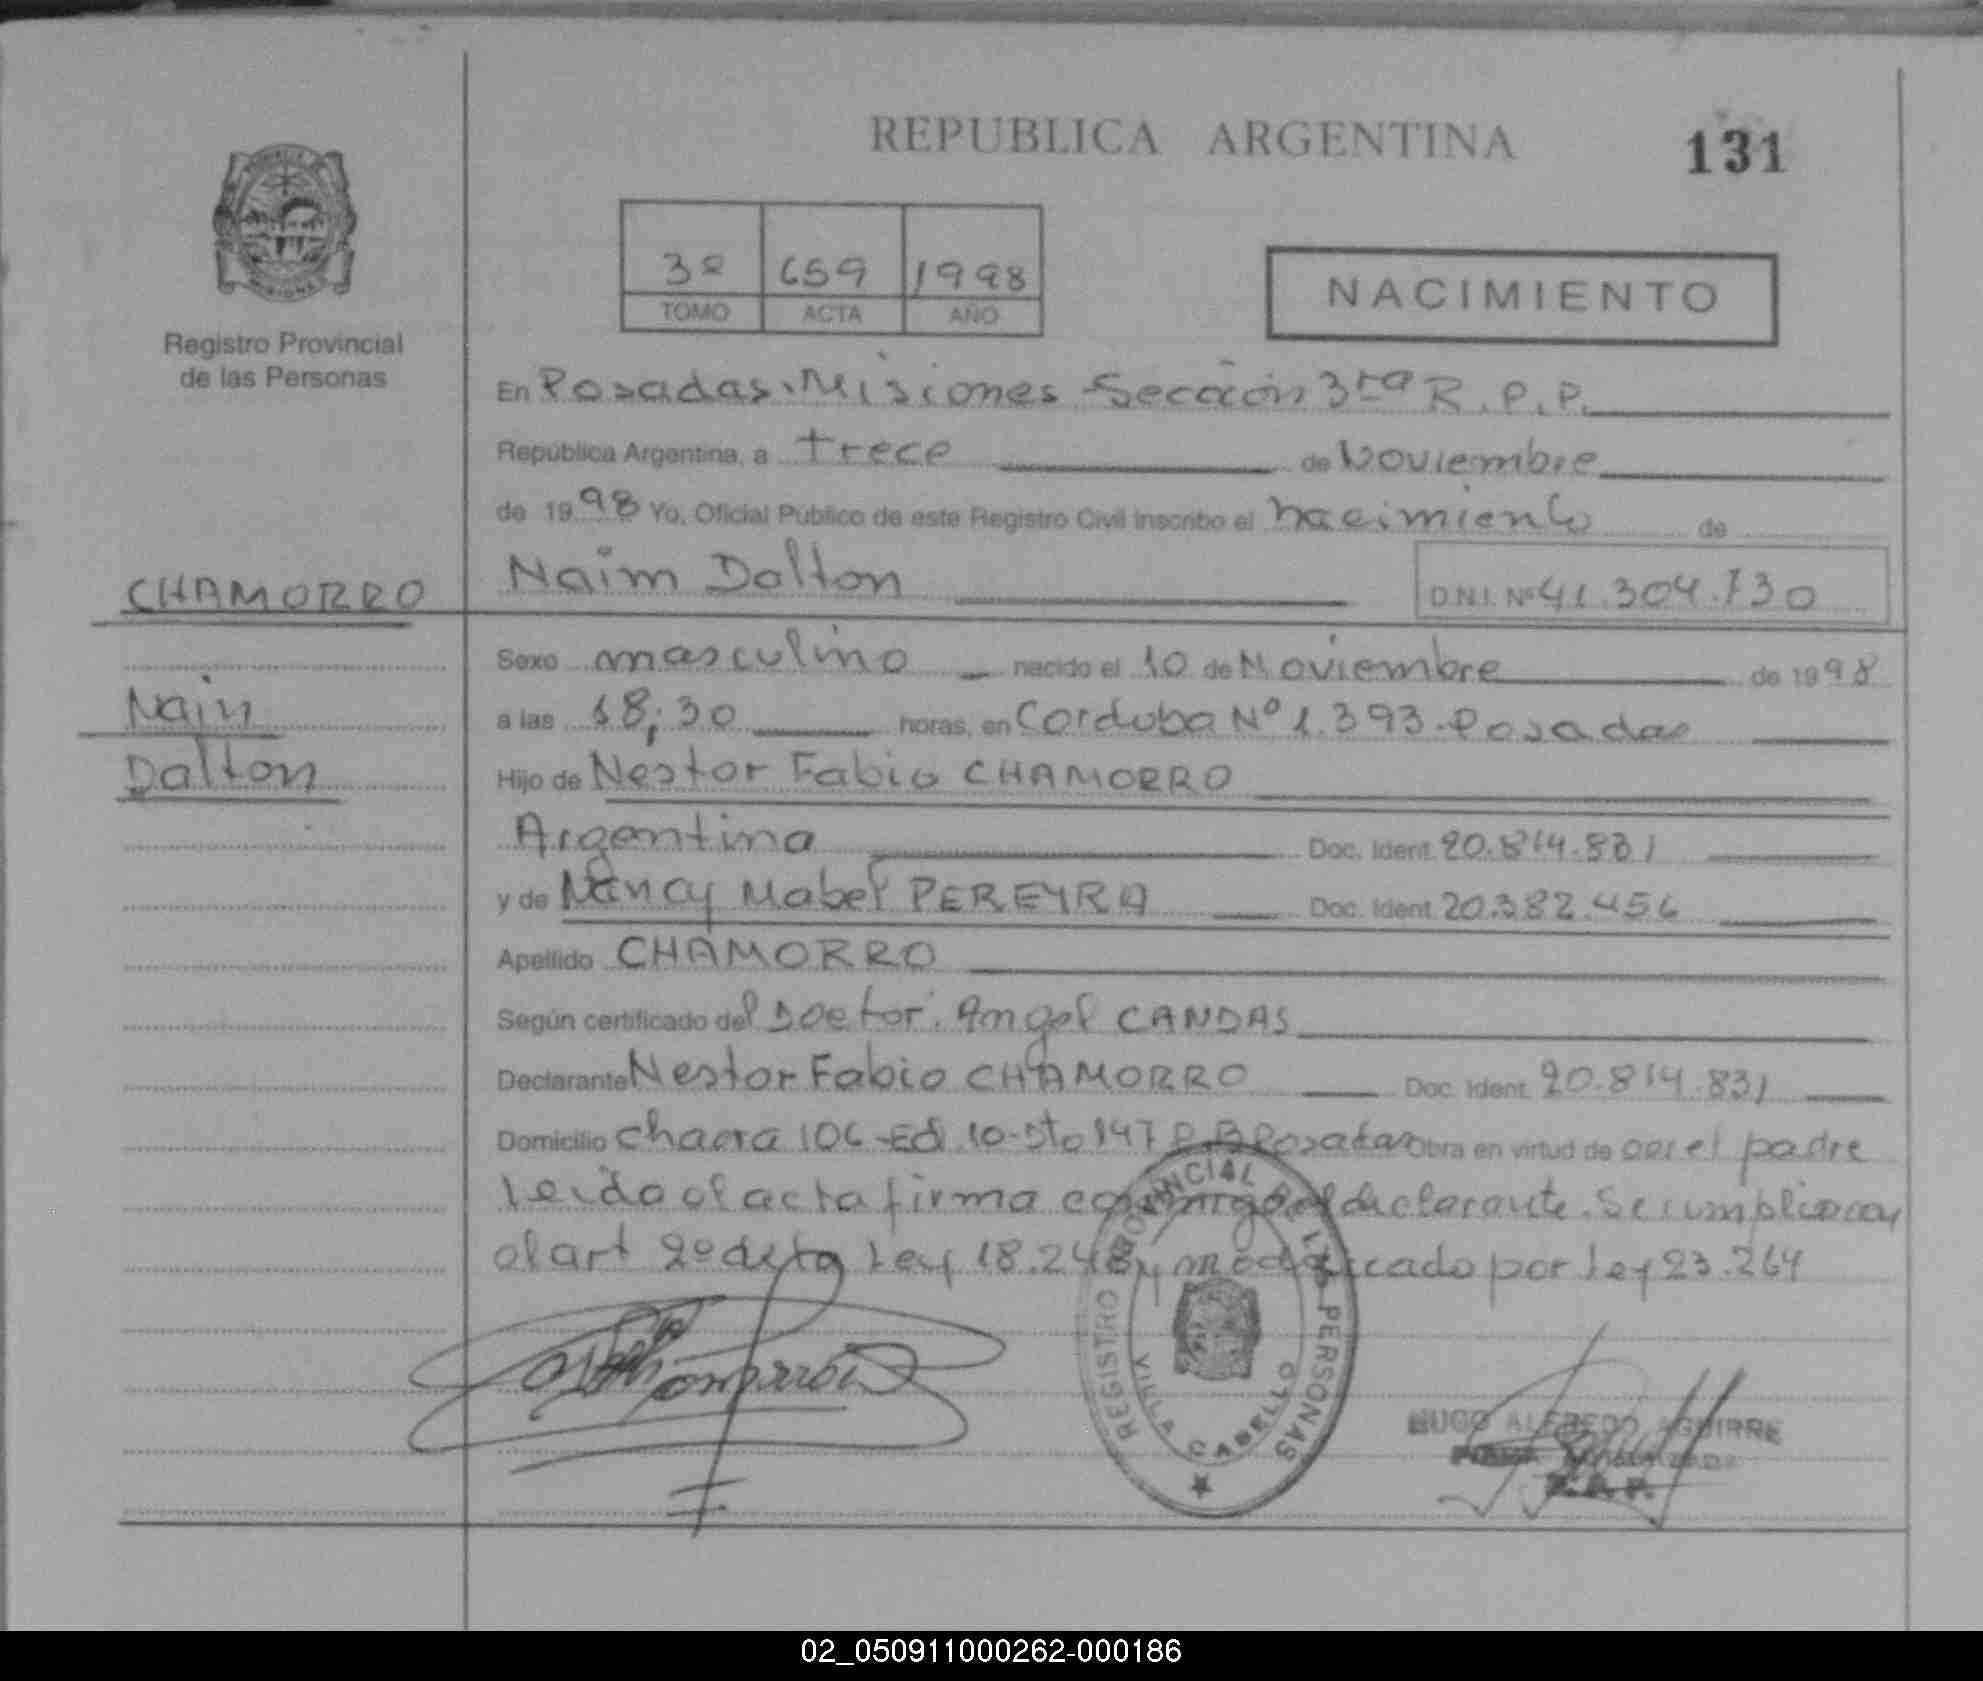 REPUBLICA ARGENTINA
131
Registro Provincial
de las Personas
3º 659 1998
TOMO ACTA AÑO
NACIMIENTO
En Posadas. Misiones Sección 3ra R.P.P.
República Argentina, a trece de Noviembre
de 1998 Yo, Oficial Público de este Registro Civil inscribo el nacimiento de
CHAMORRO
Naim Dalton
D.N.I. Nº 41.304.730
Sexo masculino nacido el 10 de Noviembre de 1998
Nain
a las 18:30 horas, en Cordoba Nº 1.393 - Posadas
Dalton
Hijo de Nestor Fabio CHAMORRO
Argentina Doc. Ident. 20.814.831
y de Nancy Mabel PEREYRA Doc. Ident. 20.382.456
Apellido CHAMORRO
Según certificado del Doctor: Angel CANDAS
Declarante Nestor Fabio CHAMORRO Doc. Ident. 20.814.831
Domicilio Chacra 106 - Ed. 10 - Dto 147 P.B Posadas Obra en virtud de ser el padre
Leida el acta firma conmigo el declarante. Se cumplio con
el art 2º de la Ley 18.248 y modificado por Ley 23.264
REGISTRO PROVINCIAL DE LAS PERSONAS
VILLA CABELLO
HUGO ALFREDO AGUIRRE
02_050911000262-000186